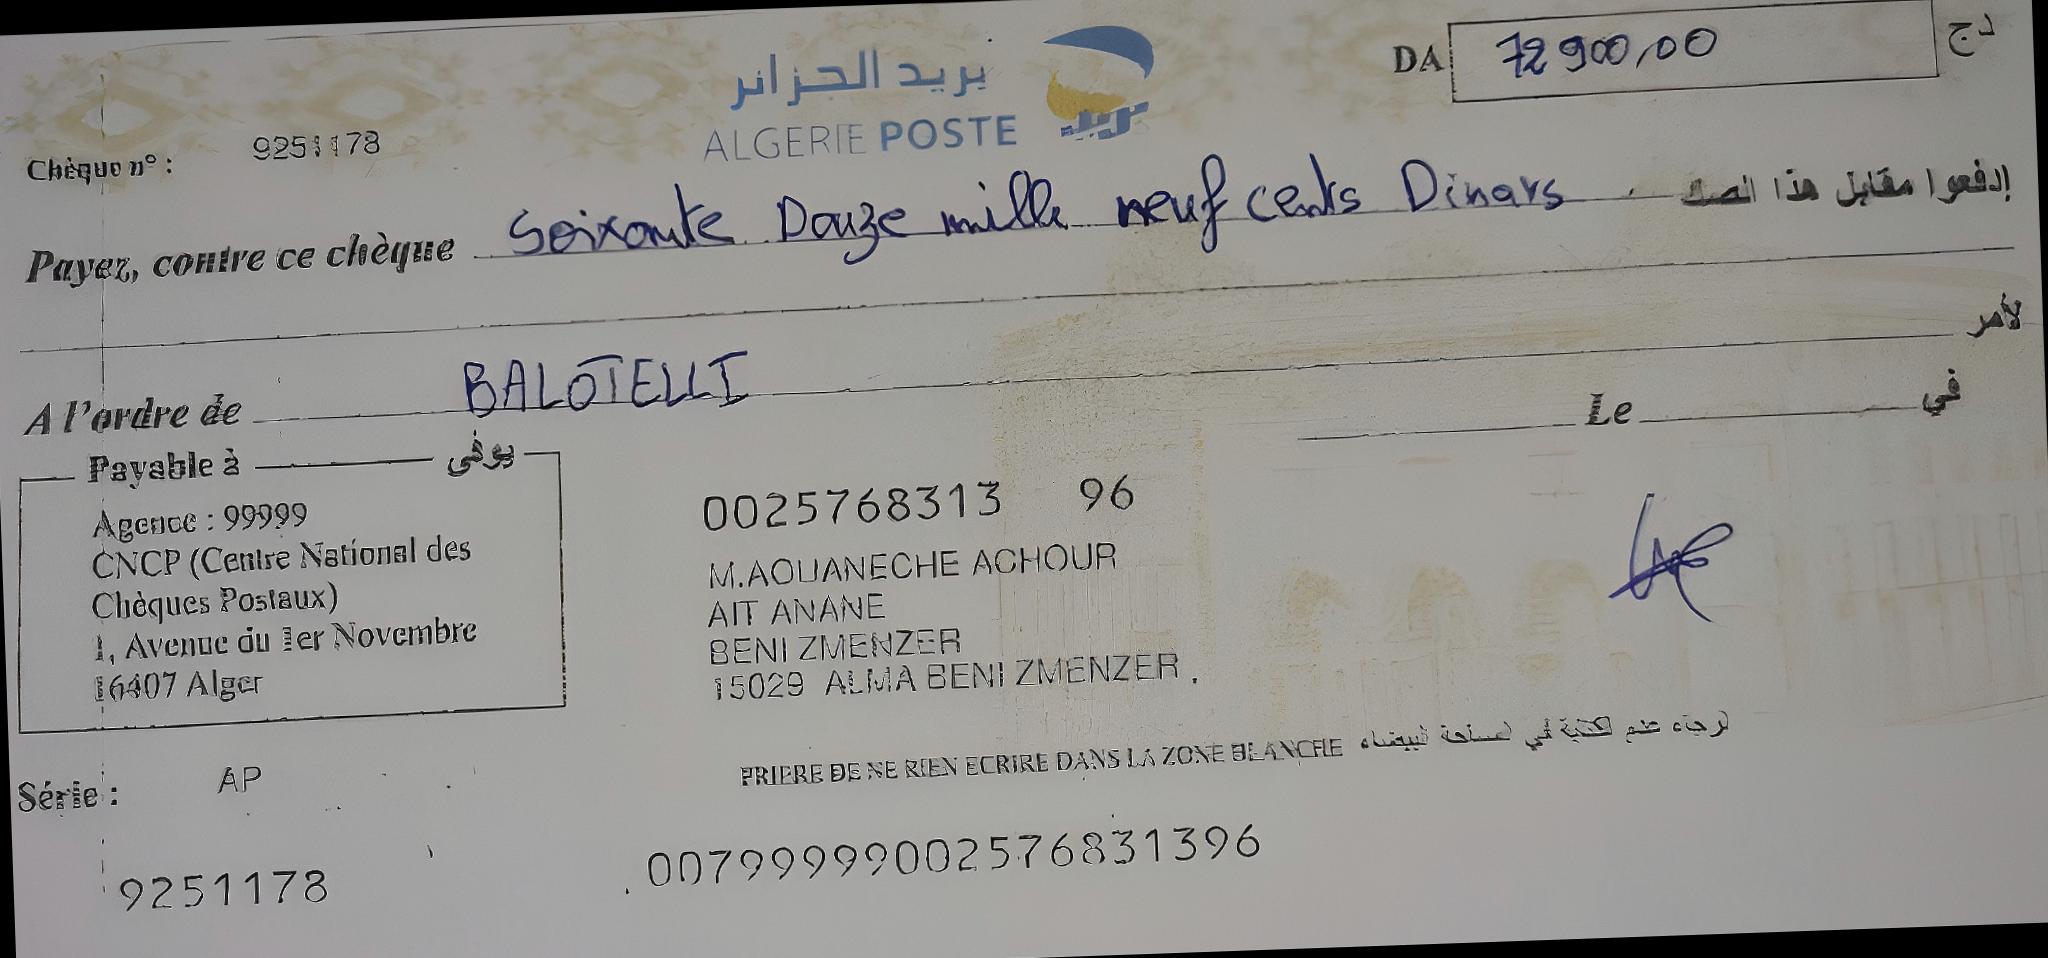 بريد الجزائر
ALGERIE POSTE
بريد
DA 72 900,00 دج
Chèque n° : 9251178
Payez, contre ce chèque Soixante Douze mille neuf cents Dinars إدفعوا مقابل هذا الصك
لأمر
A l'ordre de BALOTELLI
Le في
Payable à يوفى
Agence : 99999
CNCP (Centre National des
Chèques Postaux)
1, Avenue du 1er Novembre
16407 Alger
0025768313 96
M.AOUANECHE ACHOUR
AIT ANANE
BENI ZMENZER
15029 ALMA BENI ZMENZER .
PRIERE DE NE RIEN ECRIRE DANS LA ZONE BLANCHE الرجاء عدم الكتابة في المساحة البيضاء
Série : AP
9251178
00799999002576831396